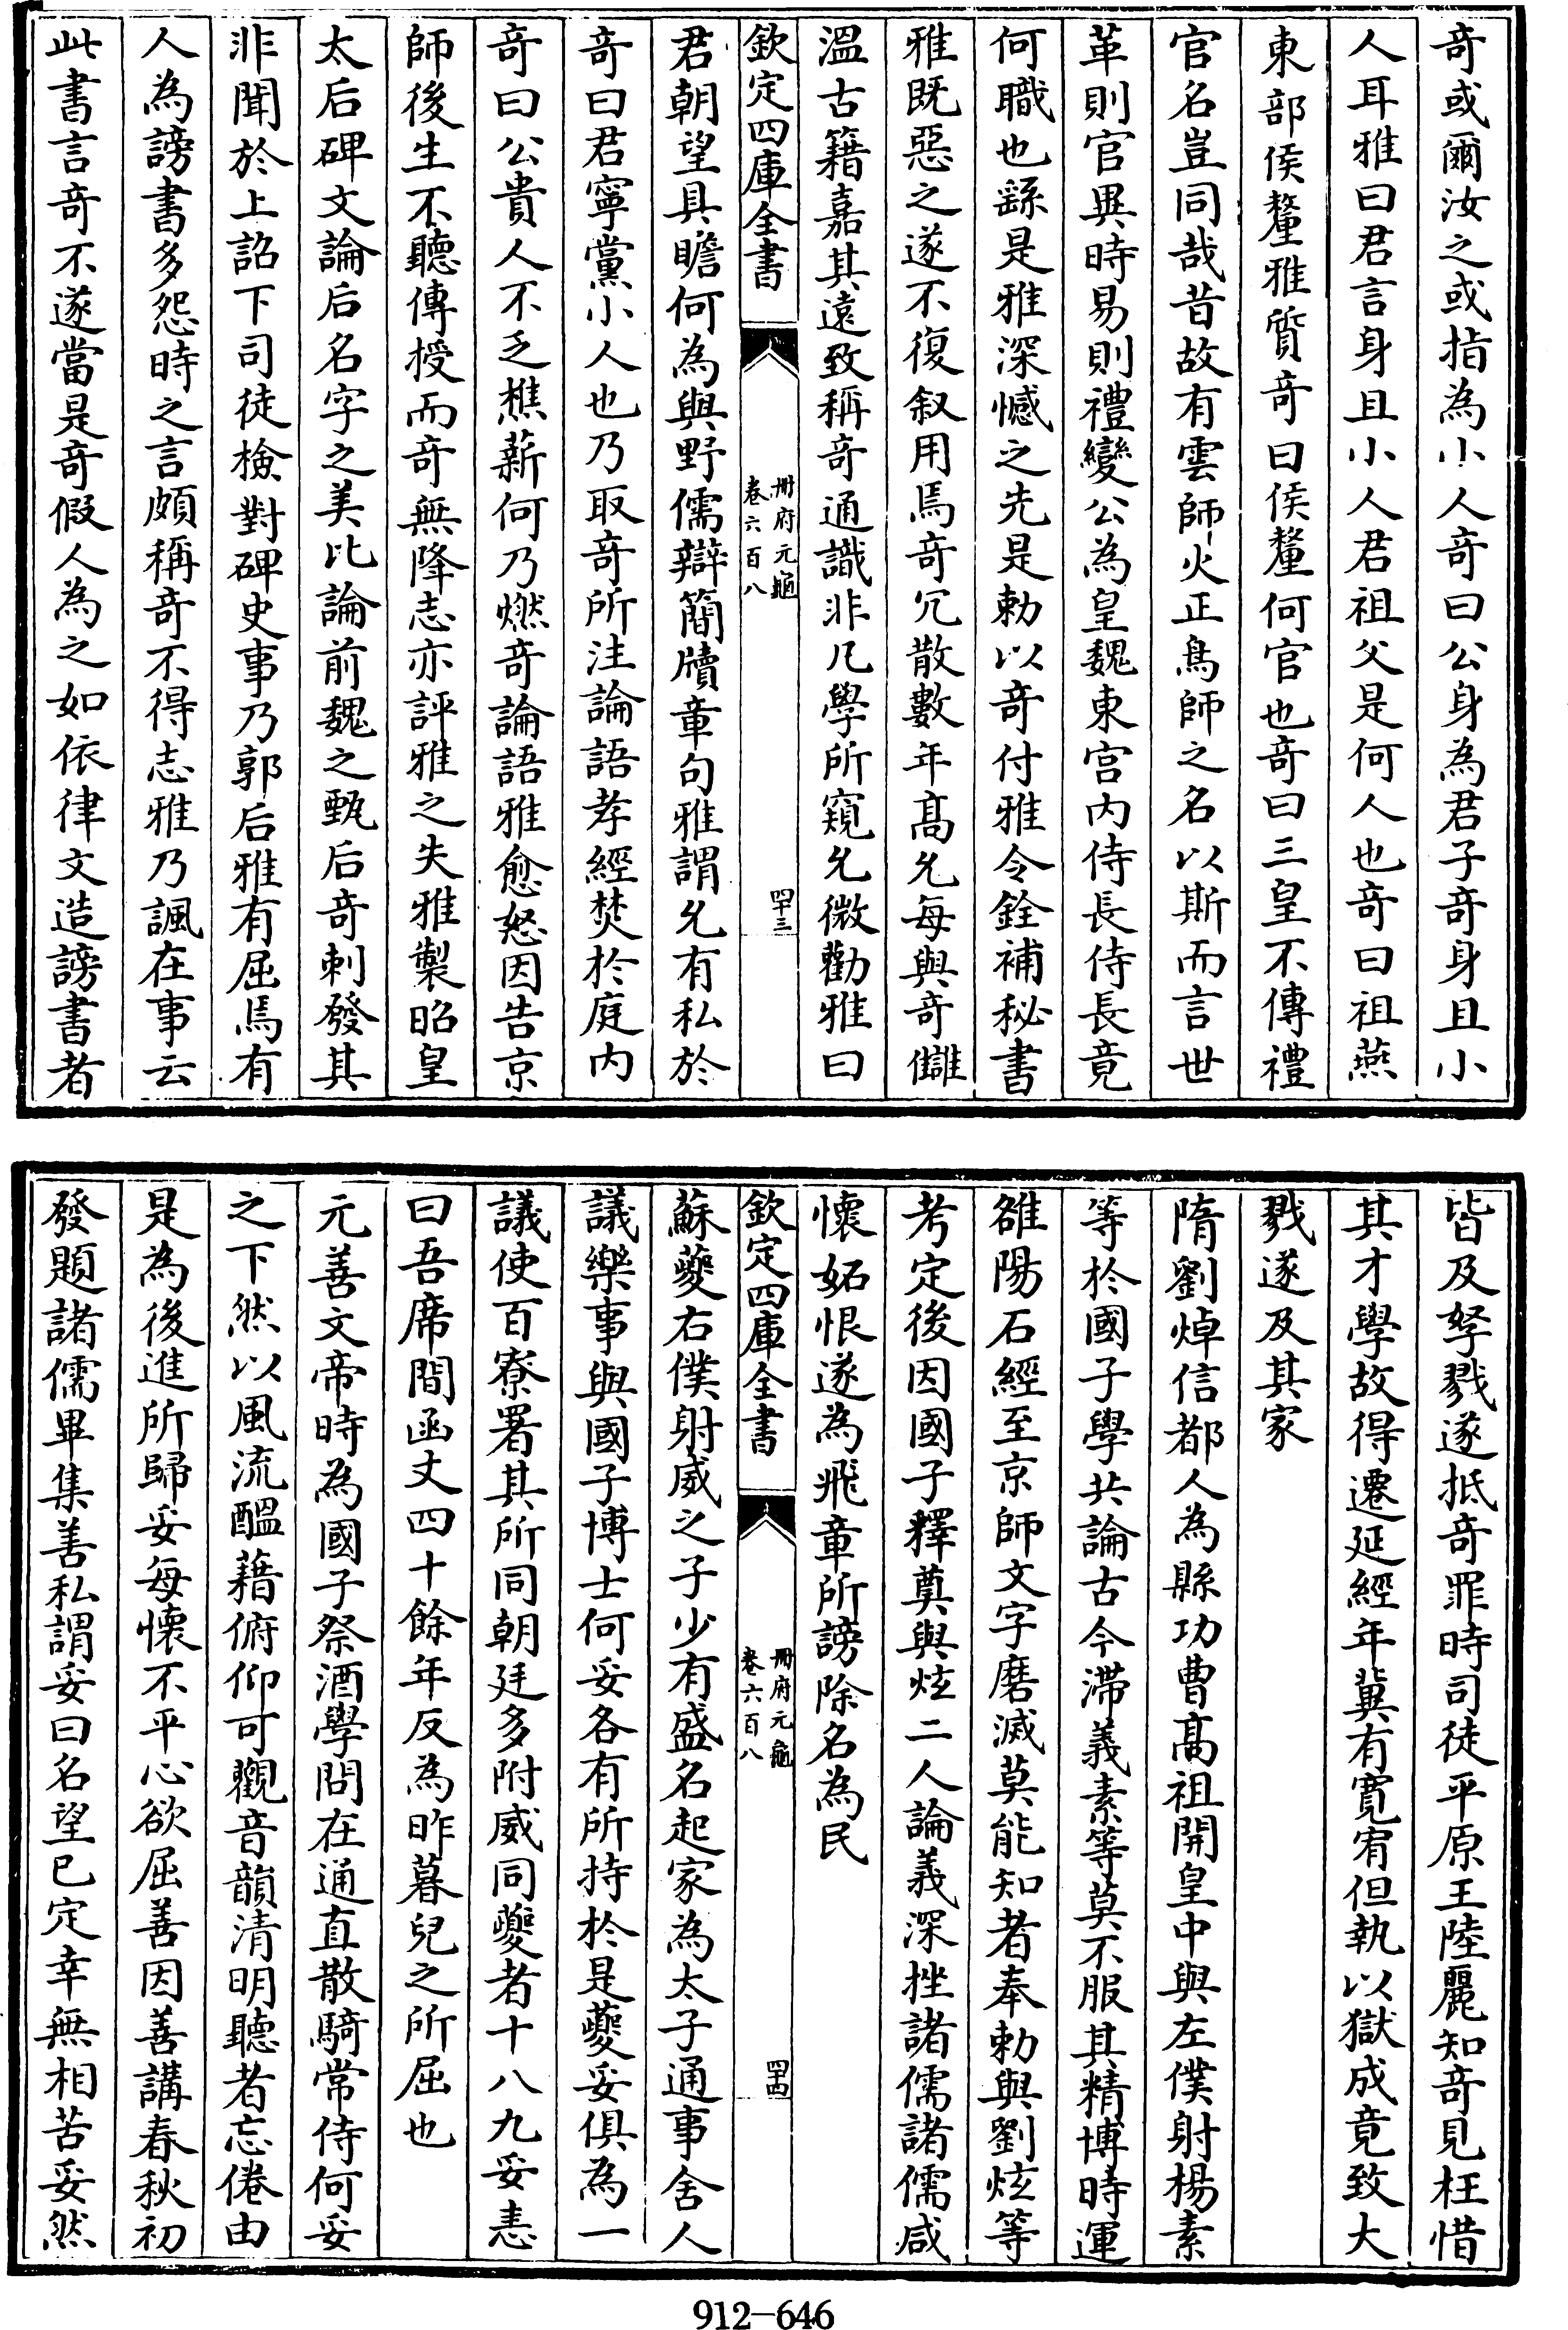 奇或爾汝之或指為小人奇曰公身為君子奇身且小
人耳雅曰君言身且小人君祖父是何人也奇曰祖燕
東部侯釐雅質奇曰侯釐何官也奇曰三皇不傳禮
官名豈同哉昔故有雲師火正鳥師之名以斯而言世
革則官異時易則禮變公為皇魏東宮內侍長侍長竟
何職也繇是雅深憾之先是勅以奇付雅令銓補秘書
雅既惡之遂不復叙用焉奇冗散數年高允每與奇讎
溫古籍嘉其遠致稱奇通識非凡學所窺允微勸雅曰
欽定四庫全書
冊府元龜
卷六百八
四十三
君朝望具瞻何為與野儒辯簡牘章句雅謂允有私於
奇曰君寧黨小人也乃取奇所注論語孝經焚於庭內
奇曰公貴人不乏樵薪何乃燃奇論語雅愈怒因告京
師後生不聽傳授而奇無降志亦評雅之失雅製昭皇
太后碑文論后名字之美比論前魏之甄后奇刺發其
非聞於上詔下司徒檢對碑史事乃郭后雅有屈焉有
人為謗書多怨時之言頗稱奇不得志雅乃諷在事云
此書言奇不遂當是奇假人為之如依律文造謗書者
皆及孥戮遂抵奇罪時司徒平原王陸麗知奇見枉惜
其才學故得遷延經年冀有寬宥但執以獄成竟致大
戮遂及其家
隋劉焯信都人為縣功曹高祖開皇中與左僕射楊素
等於國子學共論古今滯義素等莫不服其精博時運
雒陽石經至京師文字磨滅莫能知者奉勅與劉炫等
考定後因國子釋奠與炫二人論義深挫諸儒諸儒咸
懷妬恨遂為飛章所謗除名為民
欽定四庫全書
冊府元龜
卷六百八
四十四
蘇夔右僕射威之子少有盛名起家為太子通事舍人
議樂事與國子博士何妥各有所持於是夔妥俱為一
議使百寮署其所同朝廷多附威同夔者十八九妥恚
曰吾席間函丈四十餘年反為昨暮兒之所屈也
元善文帝時為國子祭酒學問在通直散騎常侍何妥
之下然以風流醞藉俯仰可觀音韻清明聽者忘倦由
是為後進所歸妥每懷不平心欲屈善因善講春秋初
發題諸儒畢集善私謂妥曰名望已定幸無相苦妥然
912-646